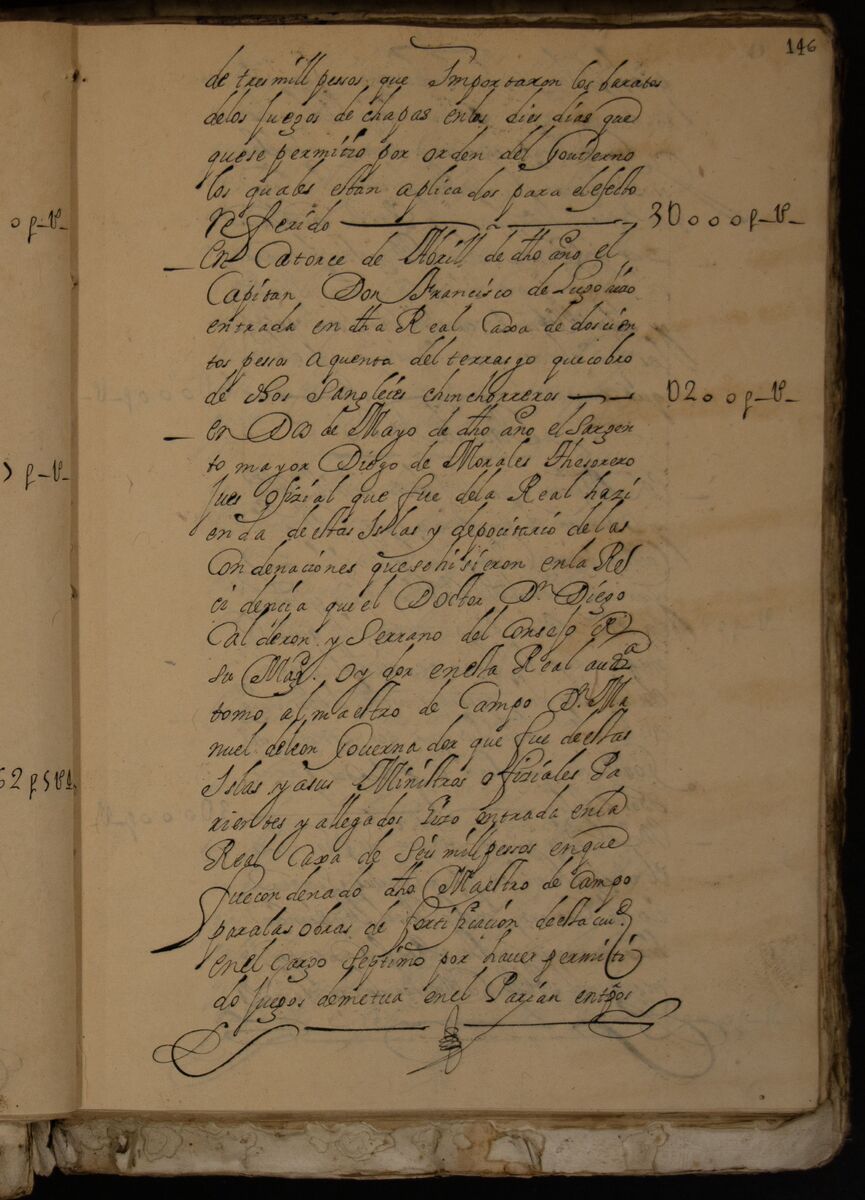 146
de tres mill pessos que Importaron los baratos
delos Juegos de chapas enlos dies dias que
quese permitio por orden del Gouierno
los quales estan aplicados para elefecto
Referido 3U000 p_U_
en Catorce de Abrill de dho año el
Capitan Don Francisco de Lugo hiso
entrada en dha Real Caxa de doscien
tos pessos a quenta del terrasgo que cobro
de los Sangleies chinchorreros U200 p_U_
en Dos de Mayo de dho año el Sargen
to mayor Diego de Morales thesorero
Jues ofizial que fue dela Real hazi
enda destas Islas y depocitario delas
Condenaciones que se hisieron enla Res
cidencia que el Doctor Dn Diego
Calderon y Serrano del Consejo de
su Magd. oydor enesta Real auda
tomo al maestro de Campo Dn Ma
nuel deleon Gouernador que fue destas
Islas y a sus Ministros ofiziales Pa
rientes y allegados hizo entrada enla
Real Caxa de Seis mill pessos enque
fue condenado dho Maestro de Campo
para las obras de fortificacion desta ciud
enel cargo Septimo por hauer permiti
do Juegos demetua enel Parian entgos
0 p_U_
p_U_
62 p5U1